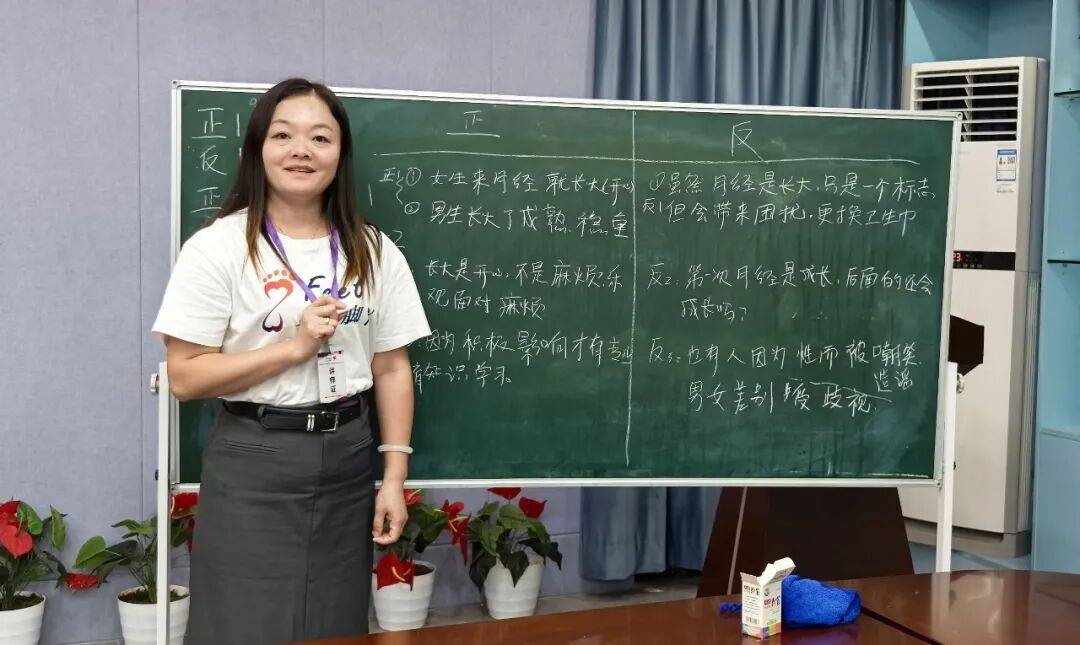 正
反
正
正
反
正1 ① 女生来月经就长大(开心
② 男生长大了成熟、稳重
长大是开心,不是麻烦.乐
观面对麻烦
因为积极影响才有专业
知识学习
①虽然月经是长大,只是一个标志
反1 但会带来困扰,更换卫生巾
反2:第一次月经是成长,后面的还会
成长吗?
反3:也有人因为性而被嘲笑
造谣
男女差别 歧视
Feet
脚丫